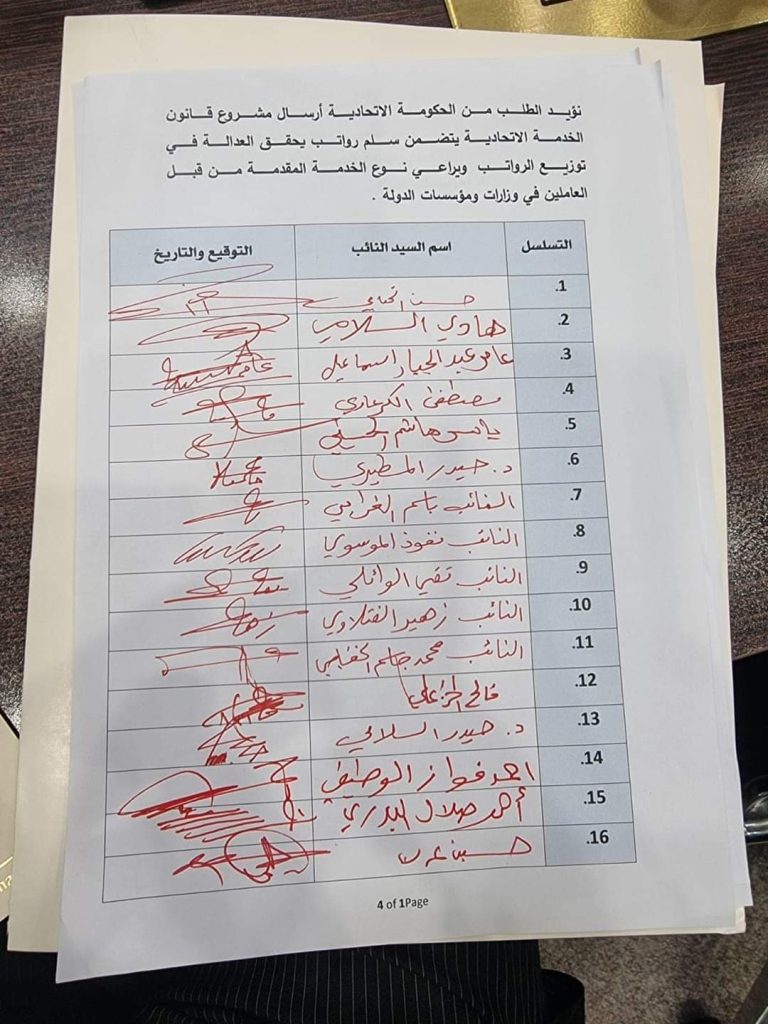 نؤيد الطلب من الحكومة الاتحادية أرسال مشروع قانون
الخدمة الاتحادية يتضمن سلم رواتب يحقق العدالة في
توزيع الرواتب ويراعي نوع الخدمة المقدمة من قبل
العاملين في وزارات ومؤسسات الدولة .
التسلسل اسم السيد النائب التوقيع والتاريخ
.1 حسن
.2 هادي السلامي
.3 عامر عبد الجبار اسماعيل
.4 مصطفى الكرعاوي
.5 ياسر هاشم الحسيني
.6 د. حيدر المطيري
.7 النائب باسم الغرابي
.8 النائب نفوذ الموسوي
.9 النائب تقي الوائلي
.10 النائب زهير الفتلاوي
.11 النائب محمد جاسم الخفاجي
.12 فالح الخزعلي
.13 د. حيدر السلامي
.14 احمد فواز الوطيفي
.15 أحمد صلال البدري
.16 حسين
4 of 1Page